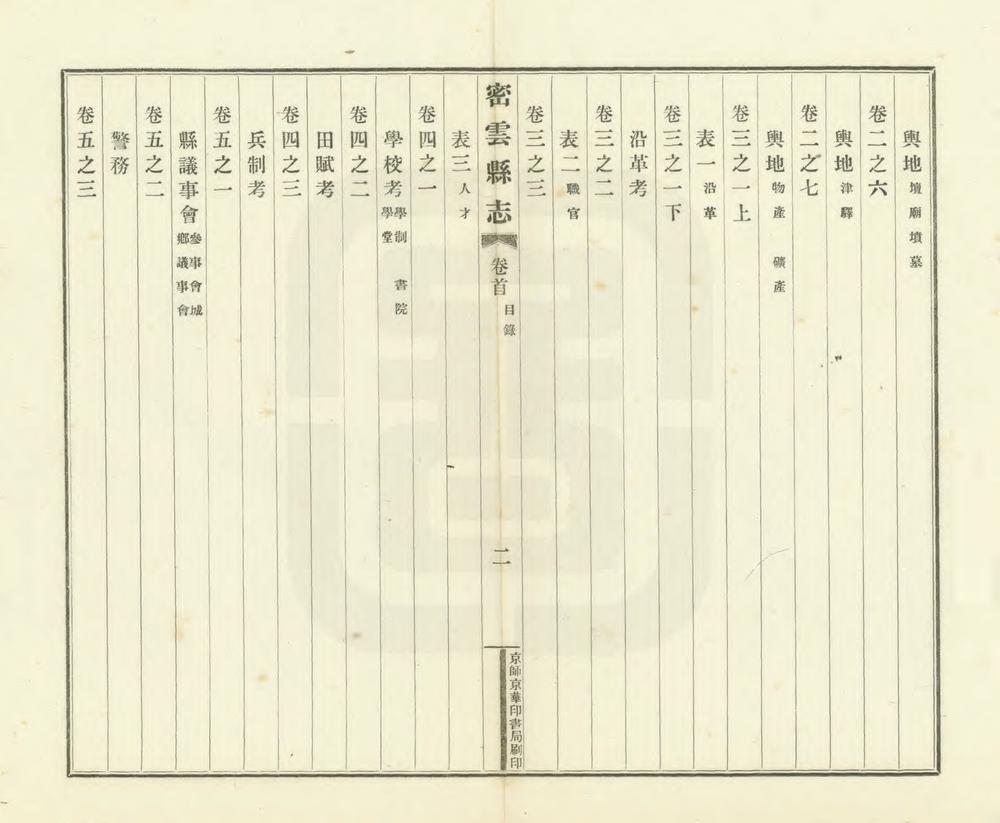 輿地壇廟墳墓
卷二之六
輿地津驛
卷二之七
輿地物產 礦產
卷三之一上
表一沿革
卷三之一下
沿革考
卷三之二
表二職官
卷三之三
密雲縣志 卷首 目錄 二 京師京華印書局刷印
表三人才
卷四之一
學校考學制 書院
學堂
卷四之二
田賦考
卷四之三
兵制考
卷五之一
縣議事會參事會城
鄉議事會
卷五之二
警務
卷五之三